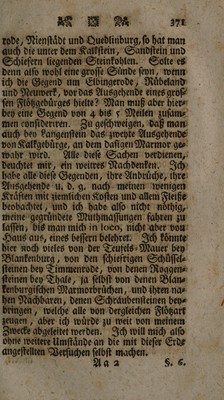 371
rode, Nienstädt und Quedlinburg, so hat man
auch die unter dem Kalkstein, Sandstein und
Schiefern liegenden Steinkohlen. Solte es
denn also wohl eine grosse Sünde seyn, wenn
ich die Gegend um Elbingerode, Rübeland
und Neuwerk, vor das Ausgehende eines gros-
sen Flötzgebürges hielte? Man muß aber hier-
bey eine Gegend von 4 bis 5 Meilen zusam-
men consideriren. Zu geschweigen, daß man
auch bey Langenstein das zweyte Ausgehende
von Kalkgebürge, an dem dasigen Marmor ge-
wahr wird. Alle diese Sachen verdienen,
deuchtet mir, ein weitres Nachdenken. Ich
habe alle diese Gegenden, ihre Anbrüche, ihre
Ausgehende u. d. g. nach meinen wenigen
Kräften mit ziemlichen Kosten und allem Fleiße
beobachtet, und ich habe also nicht nöthig,
meine gegründete Muthmassungen fahren zu
lassen, bis man mich in loco, nicht aber von
Haus aus, eines bessern belehret. Ich könnte
hier noch vieles von der Teufels-Mauer bey
Blankenburg, von den schiefrigen Schüssel-
steinen bey Timmenrode, von denen Roggen-
steinen bey Thale, ja selbst von denen Blan-
kenburgischen Marmorbrüchen, und ihren na-
hen Nachbaren, denen Schraubensteinen bey-
bringen, welche alle von dergleichen Flötzart
zeugen, aber ich würde zu weit von meinem
Zwecke abgeleitet werden. Ich will mich also
ohne weitere Umstände an die mit dieser Erde
angestellten Versuchen selbst machen.
Aa 2 §. 6.